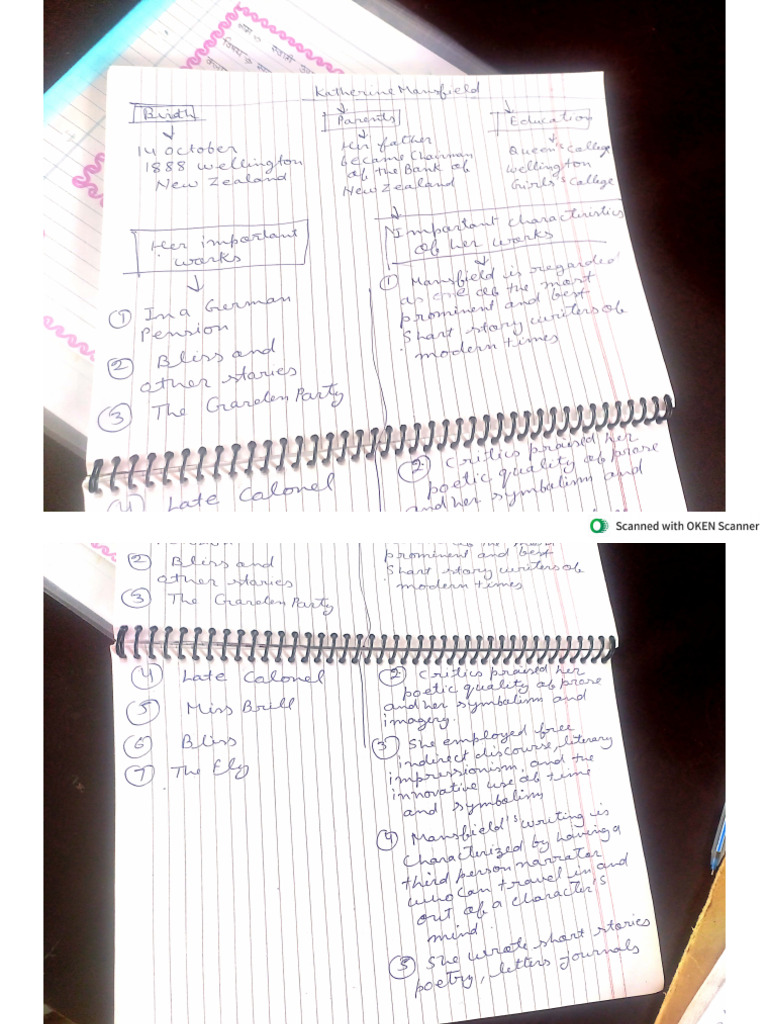 Katherine Mansfield
Birth
14 October
1888 Wellington
New Zealand
Parents
Her father
became Chairman
of the Bank of
New Zealand
Education
Queen's College
Wellington
Girls's College
Her important
works
① In a German
Pension
② Bliss and
other stories
③ The Garden Party
④ Late Colonel
Important characteristics
of her works
① Mansfield is regarded
as one of the most
prominent and best
Short story writers of
modern times
② Critics praised her
poetic quality of prose
and her symbolism and
Scanned with OKEN Scanner
② Bliss and
other stories
③ The Garden Party
④ Late Colonel
⑤ Miss Brill
⑥ Bliss
⑦ The Fly
prominent and best
Short story writers of
modern times
② Critics praised her
poetic quality of prose
and her symbolism and
imagery.
③ She employed free
indirect discourse, literary
impressionism, and the
innovative use of time
and symbolism
④ Mansfield's writing is
Characterized by having a
third person narrator
who can travel in and
out of a character's
mind.
⑤ She wrote short stories
poetry, letters journals